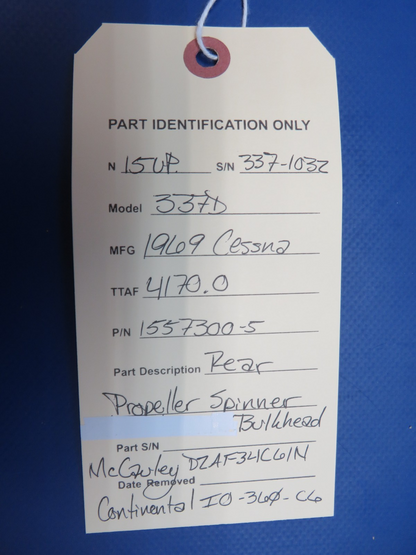 PART IDENTIFICATION ONLY
N 15UP. S/N 337-1032
Model 337D
MFG 1969 Cessna
TTAF 4170.0
P/N 1557300-5
Part Description Rear
Propeller Spinner
Bulkhead
Part S/N
McCauley D2AF34C61N
Date Removed
Continental IO-360-C6